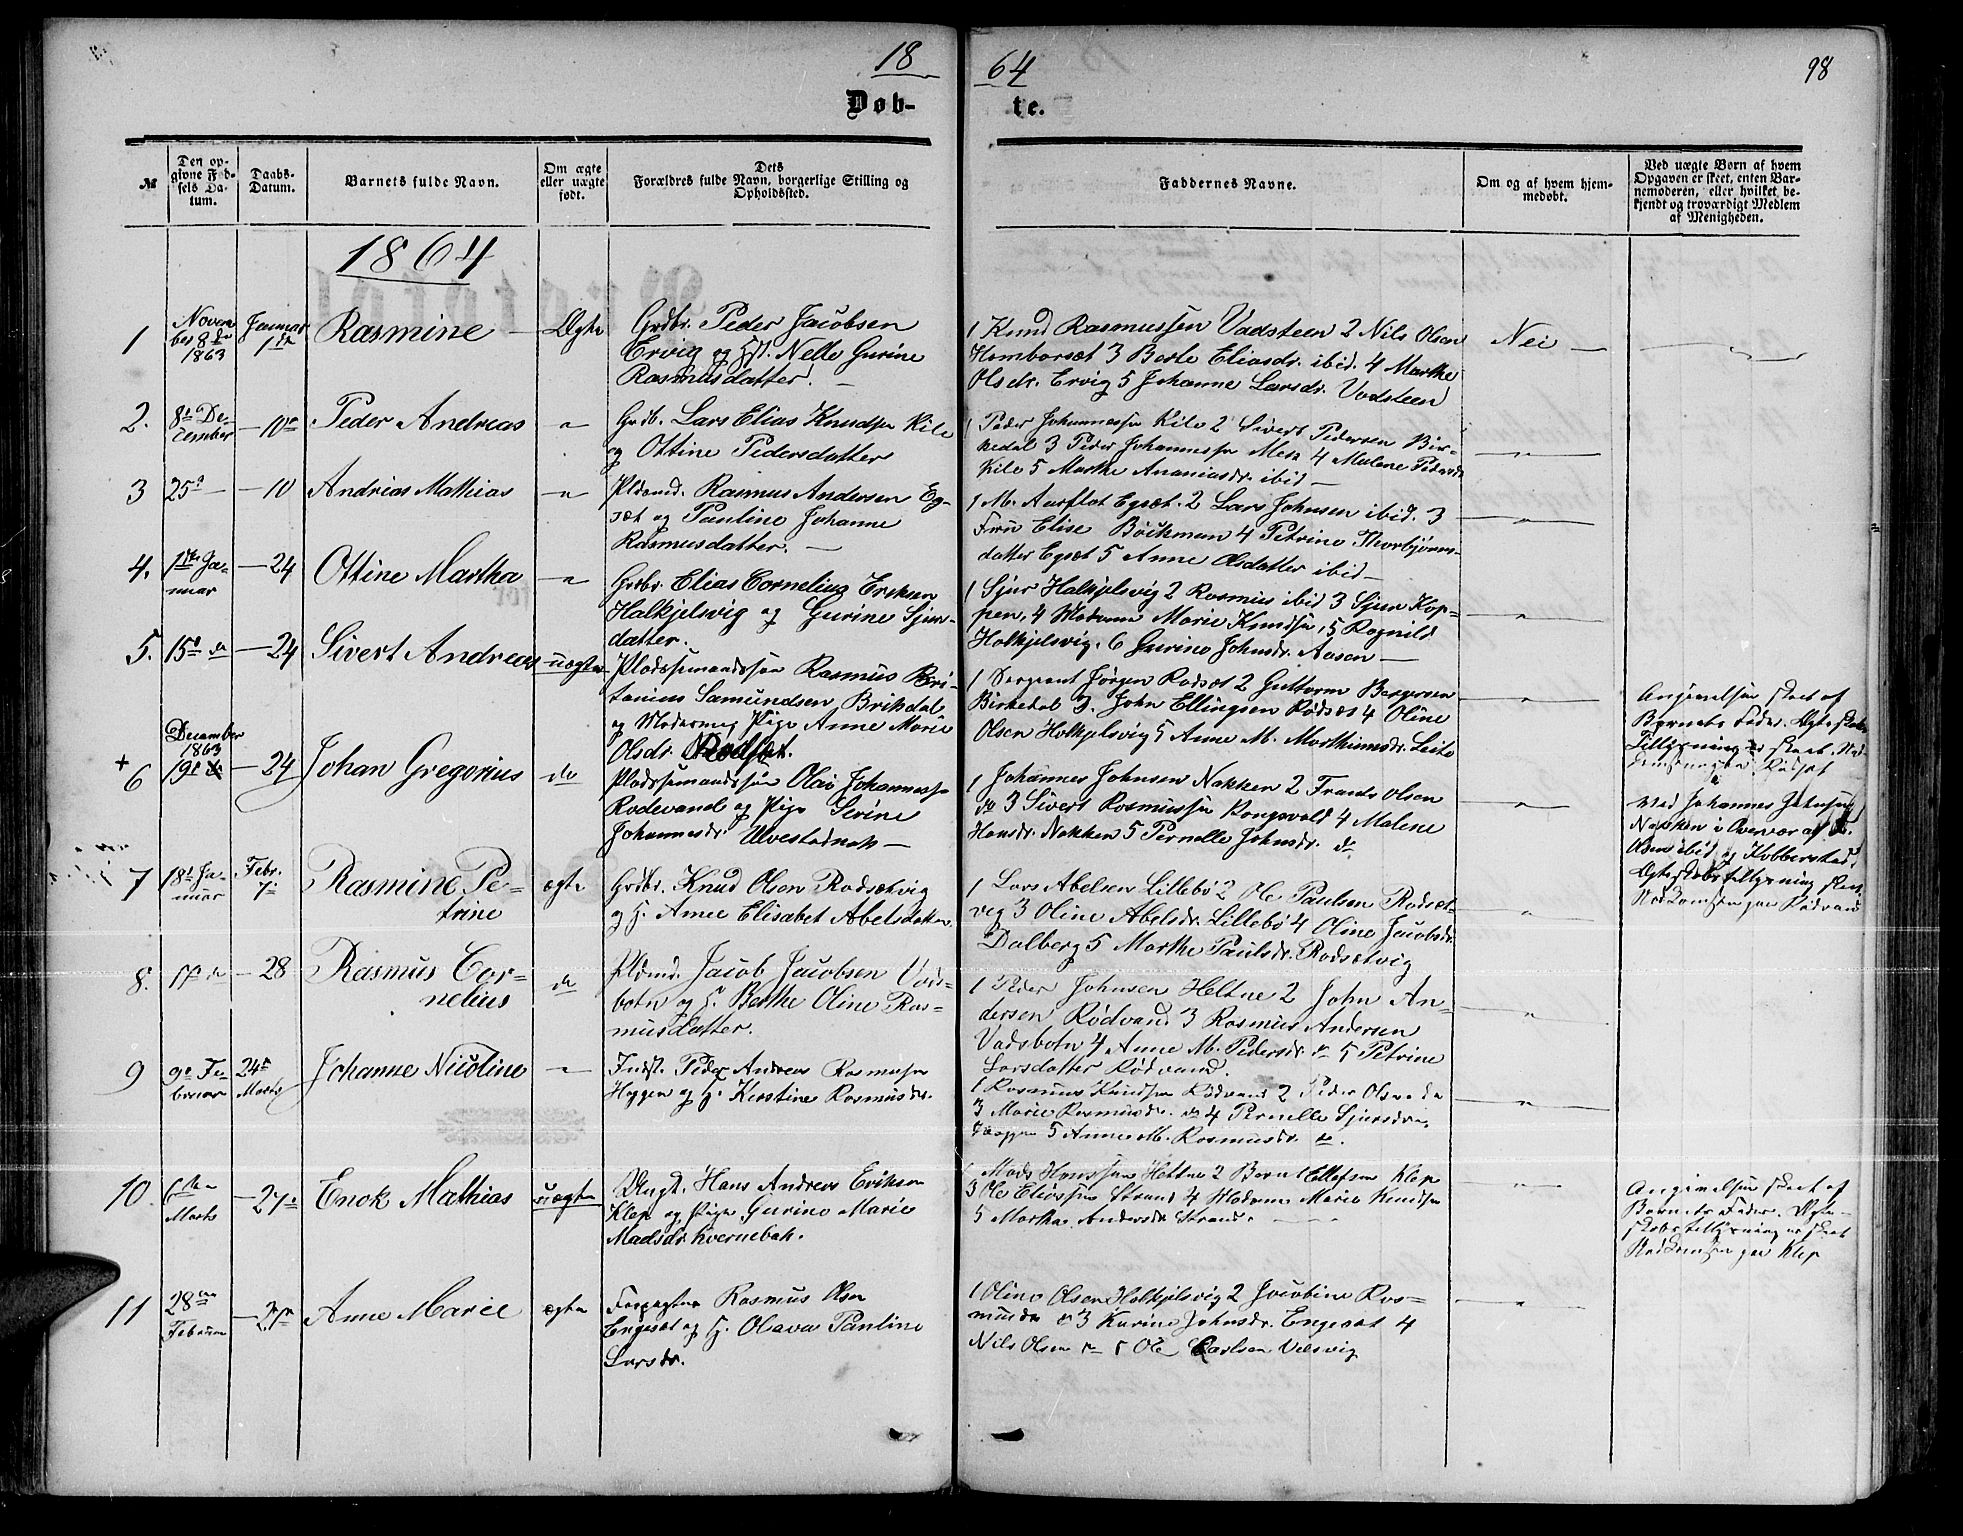 18 64 98
Døb- te.
№
Den op-
givne Fød-
sels Da-
tum.
Daabs-
Datum.
Barnets fulde Navn.
Om ægte
eller uægte
født.
Dets
Forældres fulde Navn, borgerlige Stilling og
Opholdssted.
Faddernes Navne.
Om og af hvem hjem-
medøbt.
Ved uægte Børn af hvem
Opgaven er skeet, enten Bar-
nemoderen, eller hvilket be-
kjendt og troværdigt Medlem
af Menigheden.
1864
1
Novem
ber 8de
1863
Januar
1ste
Rasmine
Ægte
Grdbr. Peder Jacobsen
Ervig og H. Nelle Gurine
Rasmusdatter.
1 Knud Rasmussen Vadsteen 2 Nils Olsen
Homborsæt 3 Berte Eliasdr. ibid. 4 Marthe
Olsdr. Ervig 5 Johanne Larsdr. Vadsteen
Nei
2.
8de De-
cember
10
Peder Andreas
Grdb. Lars Elias Knudsen Kile
og Ottine Pedersdatter
1 Peder Johannessen Kile 2 Sivert Pedersen Bir-
kedal 3 Peder Johannessen 4 Malene
Kile 5 Marthe Ananiasdr. ibid
3
25
10
Andreas Mathias
Pldsmd. Rasmus Andersen Eg-
sæt og Pauline Johanne
Rasmusdatter.
1 M. Aarflot Egsæt. 2 Lars Johnsen ibid. 3
Frøu Elise 4 Petrine Thorbjørns-
datter Egsæt 5 Anne Olsdatter ibid
4.
1ste Ja-
nuar
24
Ottine Martha
Grdbr. Elias Cornelius Eriksen
Halkjelsvig og Gurine Sjurs-
datter.
1 Sjur Halkjelsvig 2 Rasmus ibid 3 Sjur Kop-
pen, 4 Madame Marie Knudsen, 5 Ragnild
Halkjelsvig. 6 Gurine Johnsdr. Aasen
5.
15de do
24
Sivert Andreas
uægte
Pladssemandssøn Rasmus Bri-
tanius Samundsen Brikdal
og Pige Anne Marie
Olsdr. Rodsæt.
1 Sergeant Jørgen Rodsæt 2 Guttorm Bergersen
Birkedal 3. John Ellingsen Rødsæt 4 Oline
Olsen Halkjelsvig 5 Anne M. Marthinusdr. Leite
Angivelsen skeet af
Barnets Fader. Ægteskabs
Tillysning er skeet
+
6
December
1863
19de
24
Johan Gregorius
do
Pladssemandssøn Olai Johannessen
Rødevand og Pige Serine
Johannesdr. Ulvestadnak
1 Johannes Johnsen Nakken 2 Frands Olsen
do 3 Sivert Rasmussen Kongsvold 4 Malene
Hansdr. Nakken 5 Pernelle Johnsdr. do
Ved Johannes Johnsen
Nakken i Overvær af F.
Olsen ibid og Kobberstad.
Ægteskabstillysning skeet
7
18de Ja-
nuar
Febr.
7de
Rasmine Pe-
trine
ægte
Grdbr. Knud Olsen Rodsætvig
og H. Anne Elisabet Abelsdatter
1 Lars Abelsen Lillebø 2 Ole Paulsen Rodsæt-
vig 3 Oline Abelsdr. Lillebø 4 Oline Jacobsdr.
Dalberg 5 Marthe Paulsdr. Rodsætvig
8.
28
Rasmus Cor-
nelius
do
Pldsmd. Jacob Jacobsen Vads-
botn og H. Berthe Oline Ras-
musdatter.
1 Peder Johnsen Heltne 2 John An-
dersen Rødvand 3 Rasmus Andersen
Vadsbotn 4 Anne M. Pedersdr. do 5 Petrine
Larsdatter Rødvand.
9
9de Fe-
bruar
24de
Marts
Johanne Nicoline
Indst. Peder Andreas Rasmussen
Haggen og H. Kirstine Rasmusdr.
1 Rasmus Knudsen Rødvand 2 Peder Olsen do
3 Marie Rasmusdr. do 4 Pernelle Sjursdr.
Haggen 5 Anne M. Rasmusdr. do.
10.
6te
Marts
27de
Enok Mathias
uægte
Ungk. Hans Andreas Eriksen
Klep og Pige Gurine Marie
Madsdr. Kvernebak.
1 Mads Hanssen Hettne 2 Bernt Ellefsen Klep
3 Ole Eliassen Strand 4 Madame Marie Knudsen
5 Marthe Andersdr Strand.
Angivelsen skeet af
Barnets Fader. Ægte-
skabstillysning er skeet
Klep
11
28de
Februar
27de
Anne Marie
ægte
Forpagter Rasmus Olsen
Engesæt og H. Olava Pauline
Larsdr.
1 Oline Olsen Halkjelsvig 2 Jacobine Ras-
musdr do 3 Karine Johnsdr. Engesæt 4
Nils Olsen do 5 Ole Carlsen Velsvig